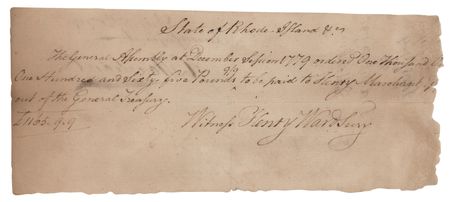 State of Rhode-Island &c.
The General Assembly at December Session 1779 ordered One Thousand
One Hundred and Sixty five Pounds 9/9 to be paid to Henry Marchant
out of the General Treasury.
£1165..9..9
Witness Henry Ward Secry